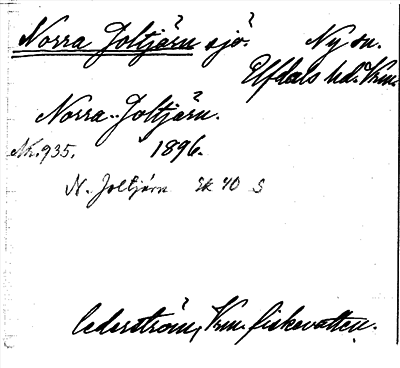 Norra Joltjärn sjö. Ny sn.
Elfdals hd. Vrm.
Norra Joltjärn.
Nr. 935. 1896.
N. Joltjärn Ek 40 S
Cederström, Vrm. fiskevatten.